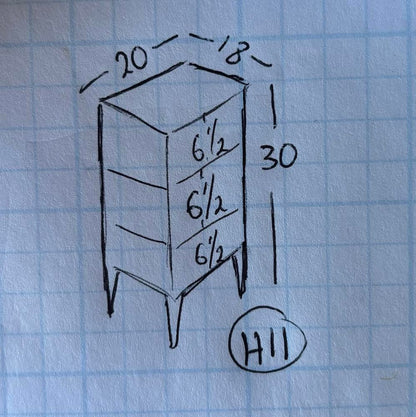 20
18
6 1/2
30
6 1/2
6 1/2
H11